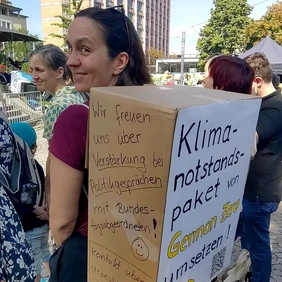 Wir freuen
uns über
Verstärkung bei
Politikgesprächen
mit Bundes-
tagsabgeordneten!
Kontakt über
Klima-
notstands-
paket von
German Zero
Umsetzen!